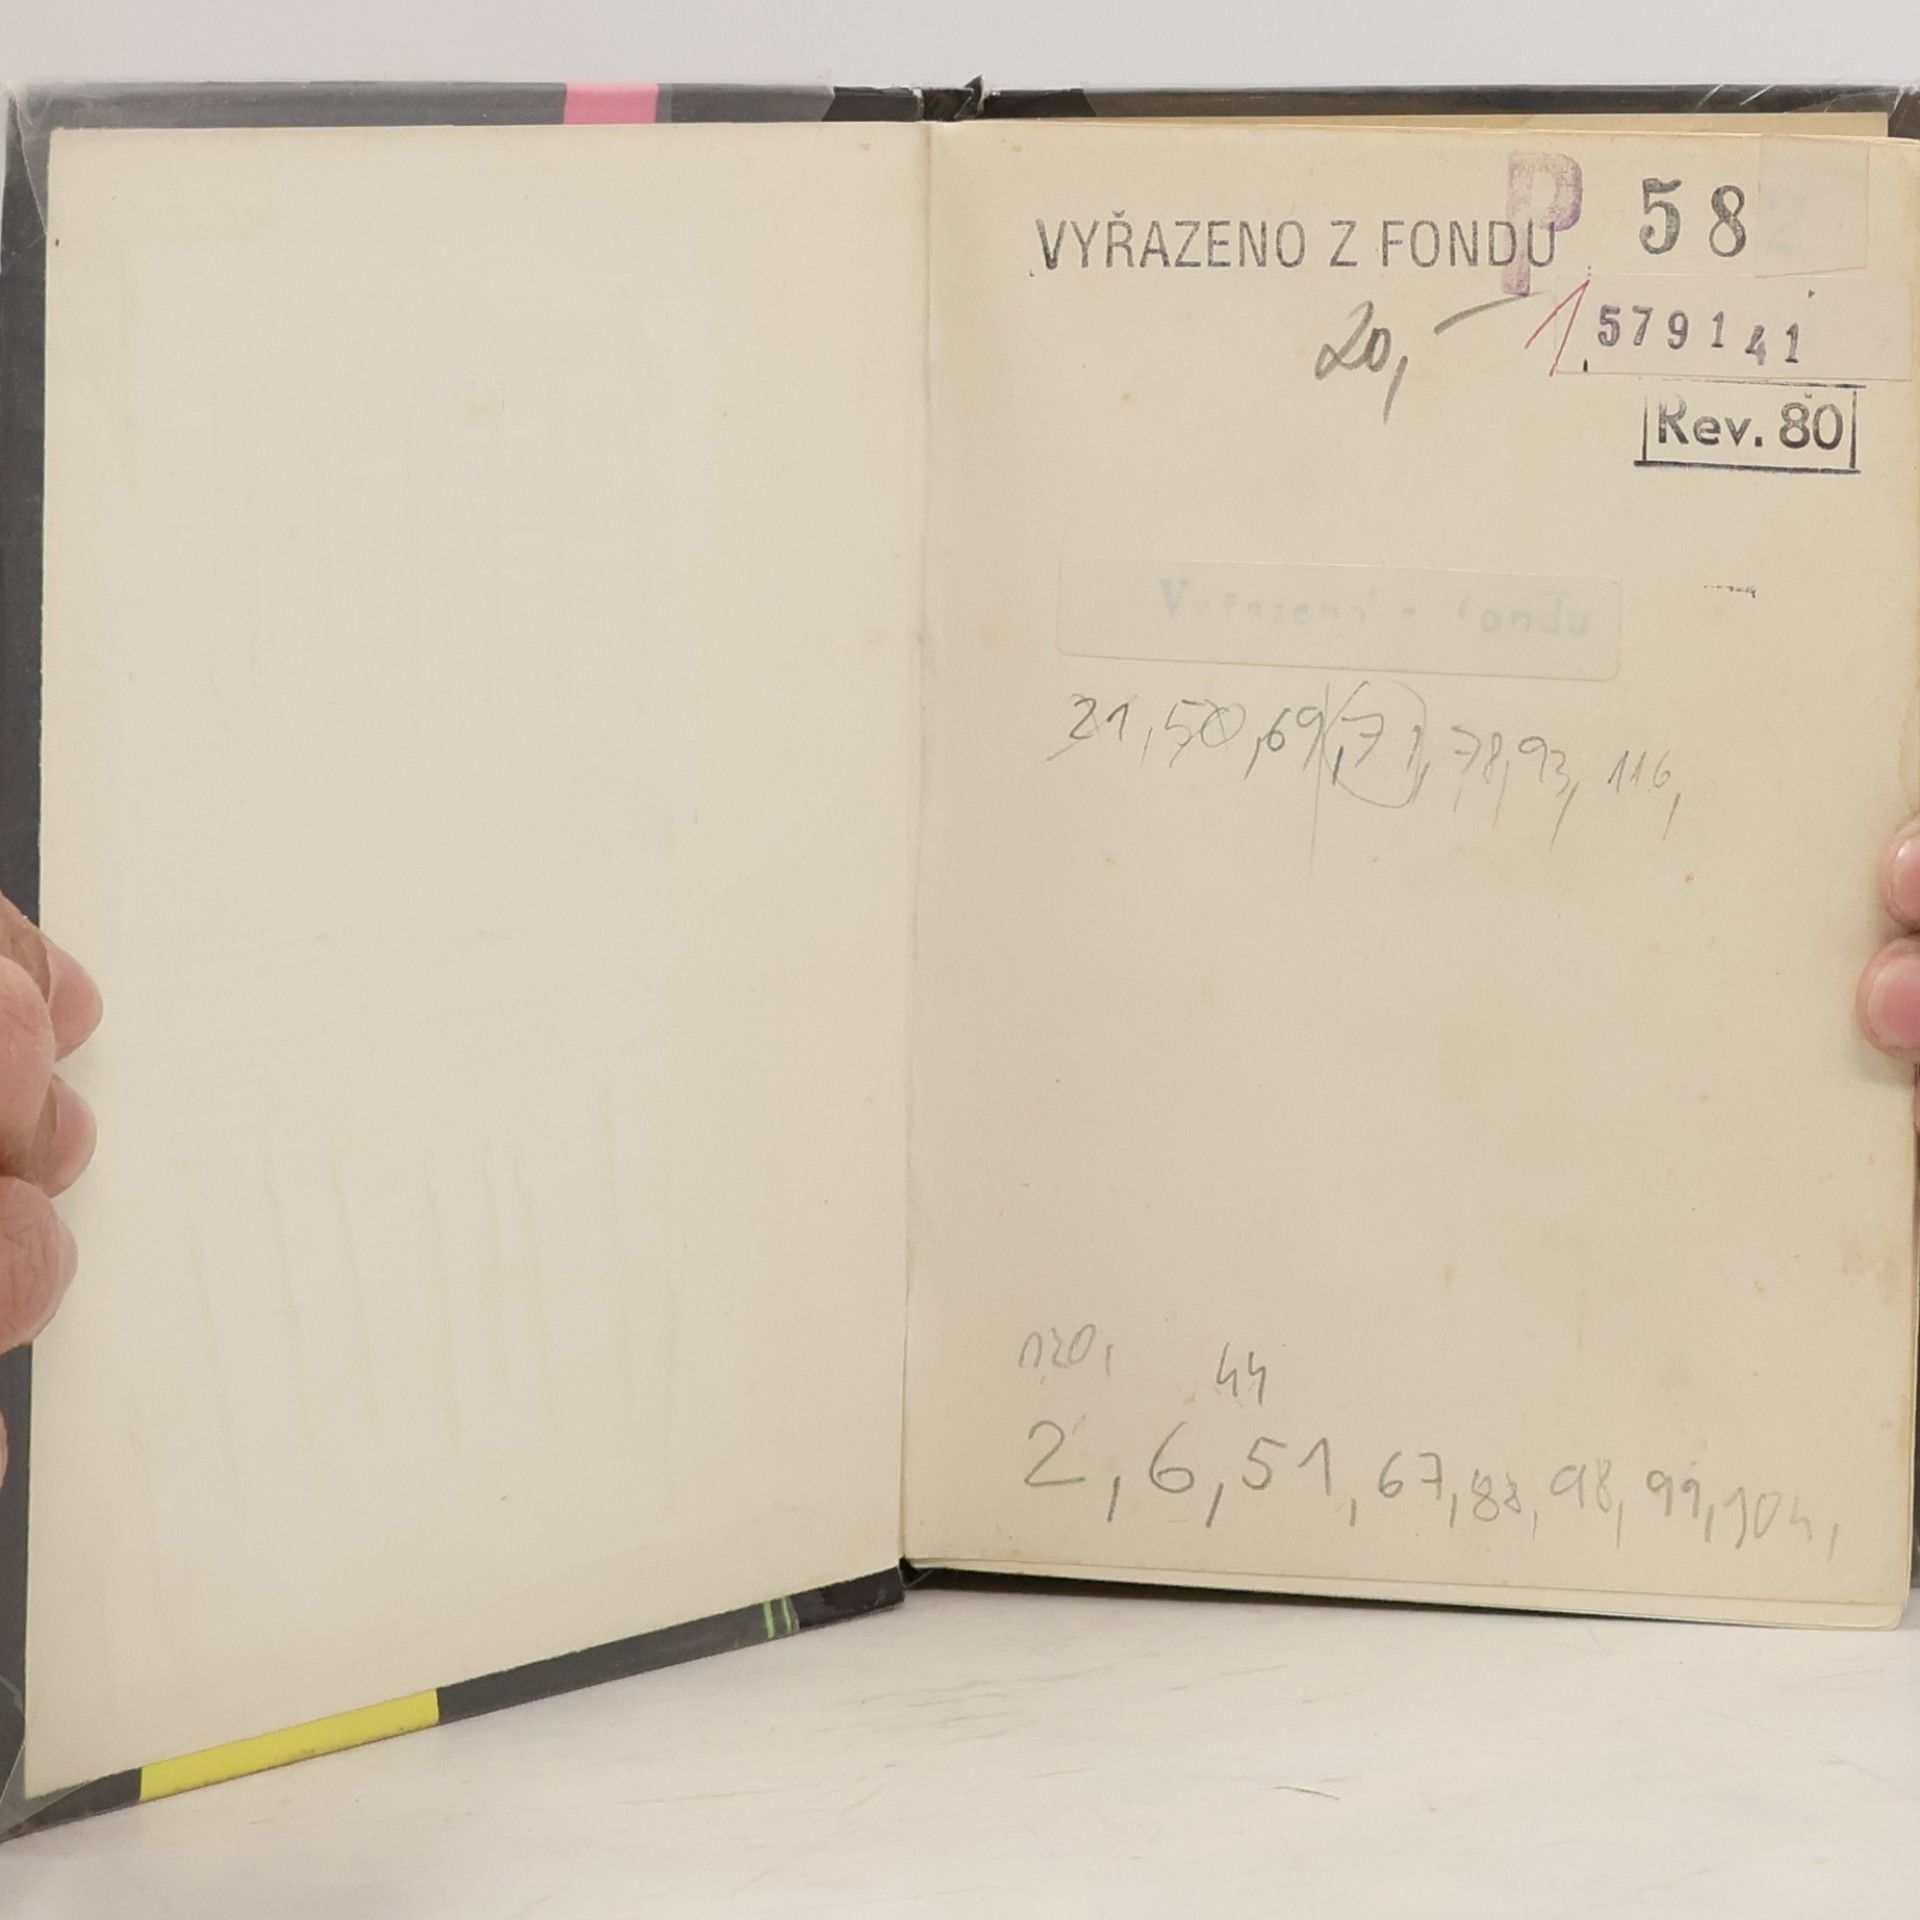 P 58
VYŘAZENO Z FONDU
20,-
1 579141
Rev. 80
Vyřazeno z fondu
21, 50, 69, 71, 78, 93, 116,
120, 44
2, 6, 51, 67, 88, 98, 99, 104,